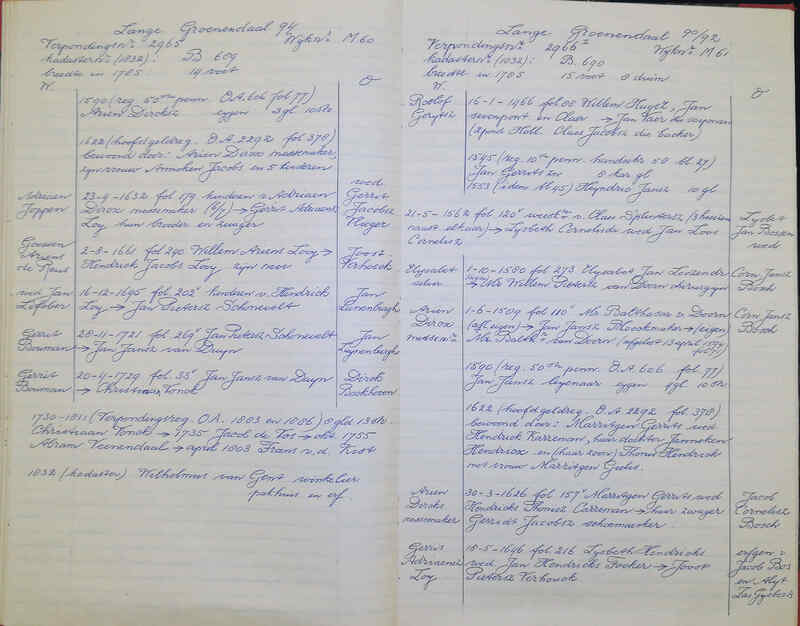 Lange Groenendaal 94
Verpondingsnr. 2965 Wijknr. M 60
kadasternr. (1832): B 689
breedte in 1785: 14 voet
W. O
1590 (reg. 50ste penn. O.A. 606 fol 77)
Arien Dircksz eygen 3gl 10st
1622 (hoofdgeldreg. O.A. 2292 fol 378)
bewoond door: Arien Dircx messemaker,
zijn vrouw Anneken Jacobs en 5 kinderen
Adriaen Joppen
23-9-1632 fol 179 kinderen v. Adriaen
Dircx messemaker → Gerrit Adriaensz
Loy hun broeder en zwager
wed. Gerrit Jacobsz
Goossen Ariens de Raet
2-8-1661 fol 290 Willem Ariens Looy →
Hendrick Jacobs Looy zijn neef
Joost Verhoeck
wed. Jan Lefeber
16-12-1695 fol 202 kinderen v. Hendrick
Loy → Jan Pietersz Schonevelt
Jan Lunenburgh
Gerrit Bouman
28-11-1721 fol 269 Jan Pietersz Schonevelt
→ Jan Jansz van Duyn
Jan Luynenburgh
Gerrit Bouman
20-4-1729 fol. 35 Jan Jansz van Duyn
→ Christiaan Vonck
Dirck Boekhoven
1730-1811 (Verpondingsreg. O.A. 1803 en 1806) 8 gld. 13 st.
Christiaan Vonck → 1735 Jacob de Vos → okt. 1755
Abram Veenendaal → april 1803 Frans v.d. Kist
1832 (kadaster) Wilhelmus van Gent winkelier
pakhuis en erf.
Lange Groenendaal 90/92
Verpondingsnr. 2966 Wijknr. M 61
kadasternr. (1832): B. 690
breedte in 1785 15 voet 8 duim
W. O
Roelof Gerytsz
16-1-1466 fol 08 Willem Huyez, Jan
→ Jan
(2pont Holl. Claes Jacobsz die backer)
1545 (reg. 10de penn. 50 bl 27)
Jan Gerritszen 8 kar gl
1553 (idem bl 45) Heyndric Jansz 10 gl
21-5-1562 fol 120 v. Claes (3 huysen
naast elkaar) → Lysbeth Cornelisdr wed. Jan Loos
Cornelisz
Lysbet Jan Bossen wed
Elysabet
1-10-1580 fol 273 Elysabet Jan
→ Mr Willem Pietersz van Doern chirurgyn
Corn. Jansz Bosch
Arien Dircx messenr.
1-6-1589 fol 180 Mr. Balthasar v. Doorn
→ Jan Jansz → (eigen)
Mr. Balth. van Doorn (afgelost 13 april 1594
Corn. Jansz Bosch
1590 (reg. 50ste penn. O.A. 606 fol 77)
Jan Jansz eygenaar eygen 4gl 10 st
1622 (hoofdgeldreg. O.A. 2292 fol 378)
bewoond door: Marritgen Gerrits wed.
Hendrick Karreman, haar dochter Janneken
Hendricx en (haar zoon) Thonis Hendricks
met vrouw Marritgen Giels.
Arien Dircks messemaker
30-3-1626 fol 157 Marritgen Gerrits wed
Hendricks Thonisz Carreman → haar zwager
Gerridt Jacobsz schoemaecker
Jacob Cornelisz Bosch
Gerrit Adriaensz Loy
15-5-1646 fol 216 Lysbeth Hendricks
wed. Jan Hendricks Focker → Joost
Pietersz Verhouck
erfgen v. Jacob Bos en Alyt